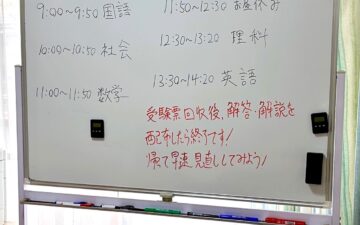 9:00~9:50 国語
10:00~10:50 社会
11:00~11:50 数学
11:50~12:30 お昼休み
12:30~13:20 理科
13:30~14:20 英語
受験票回収後、解答・解説を
配布したら終了です!
帰て早速見直ししてみよう!